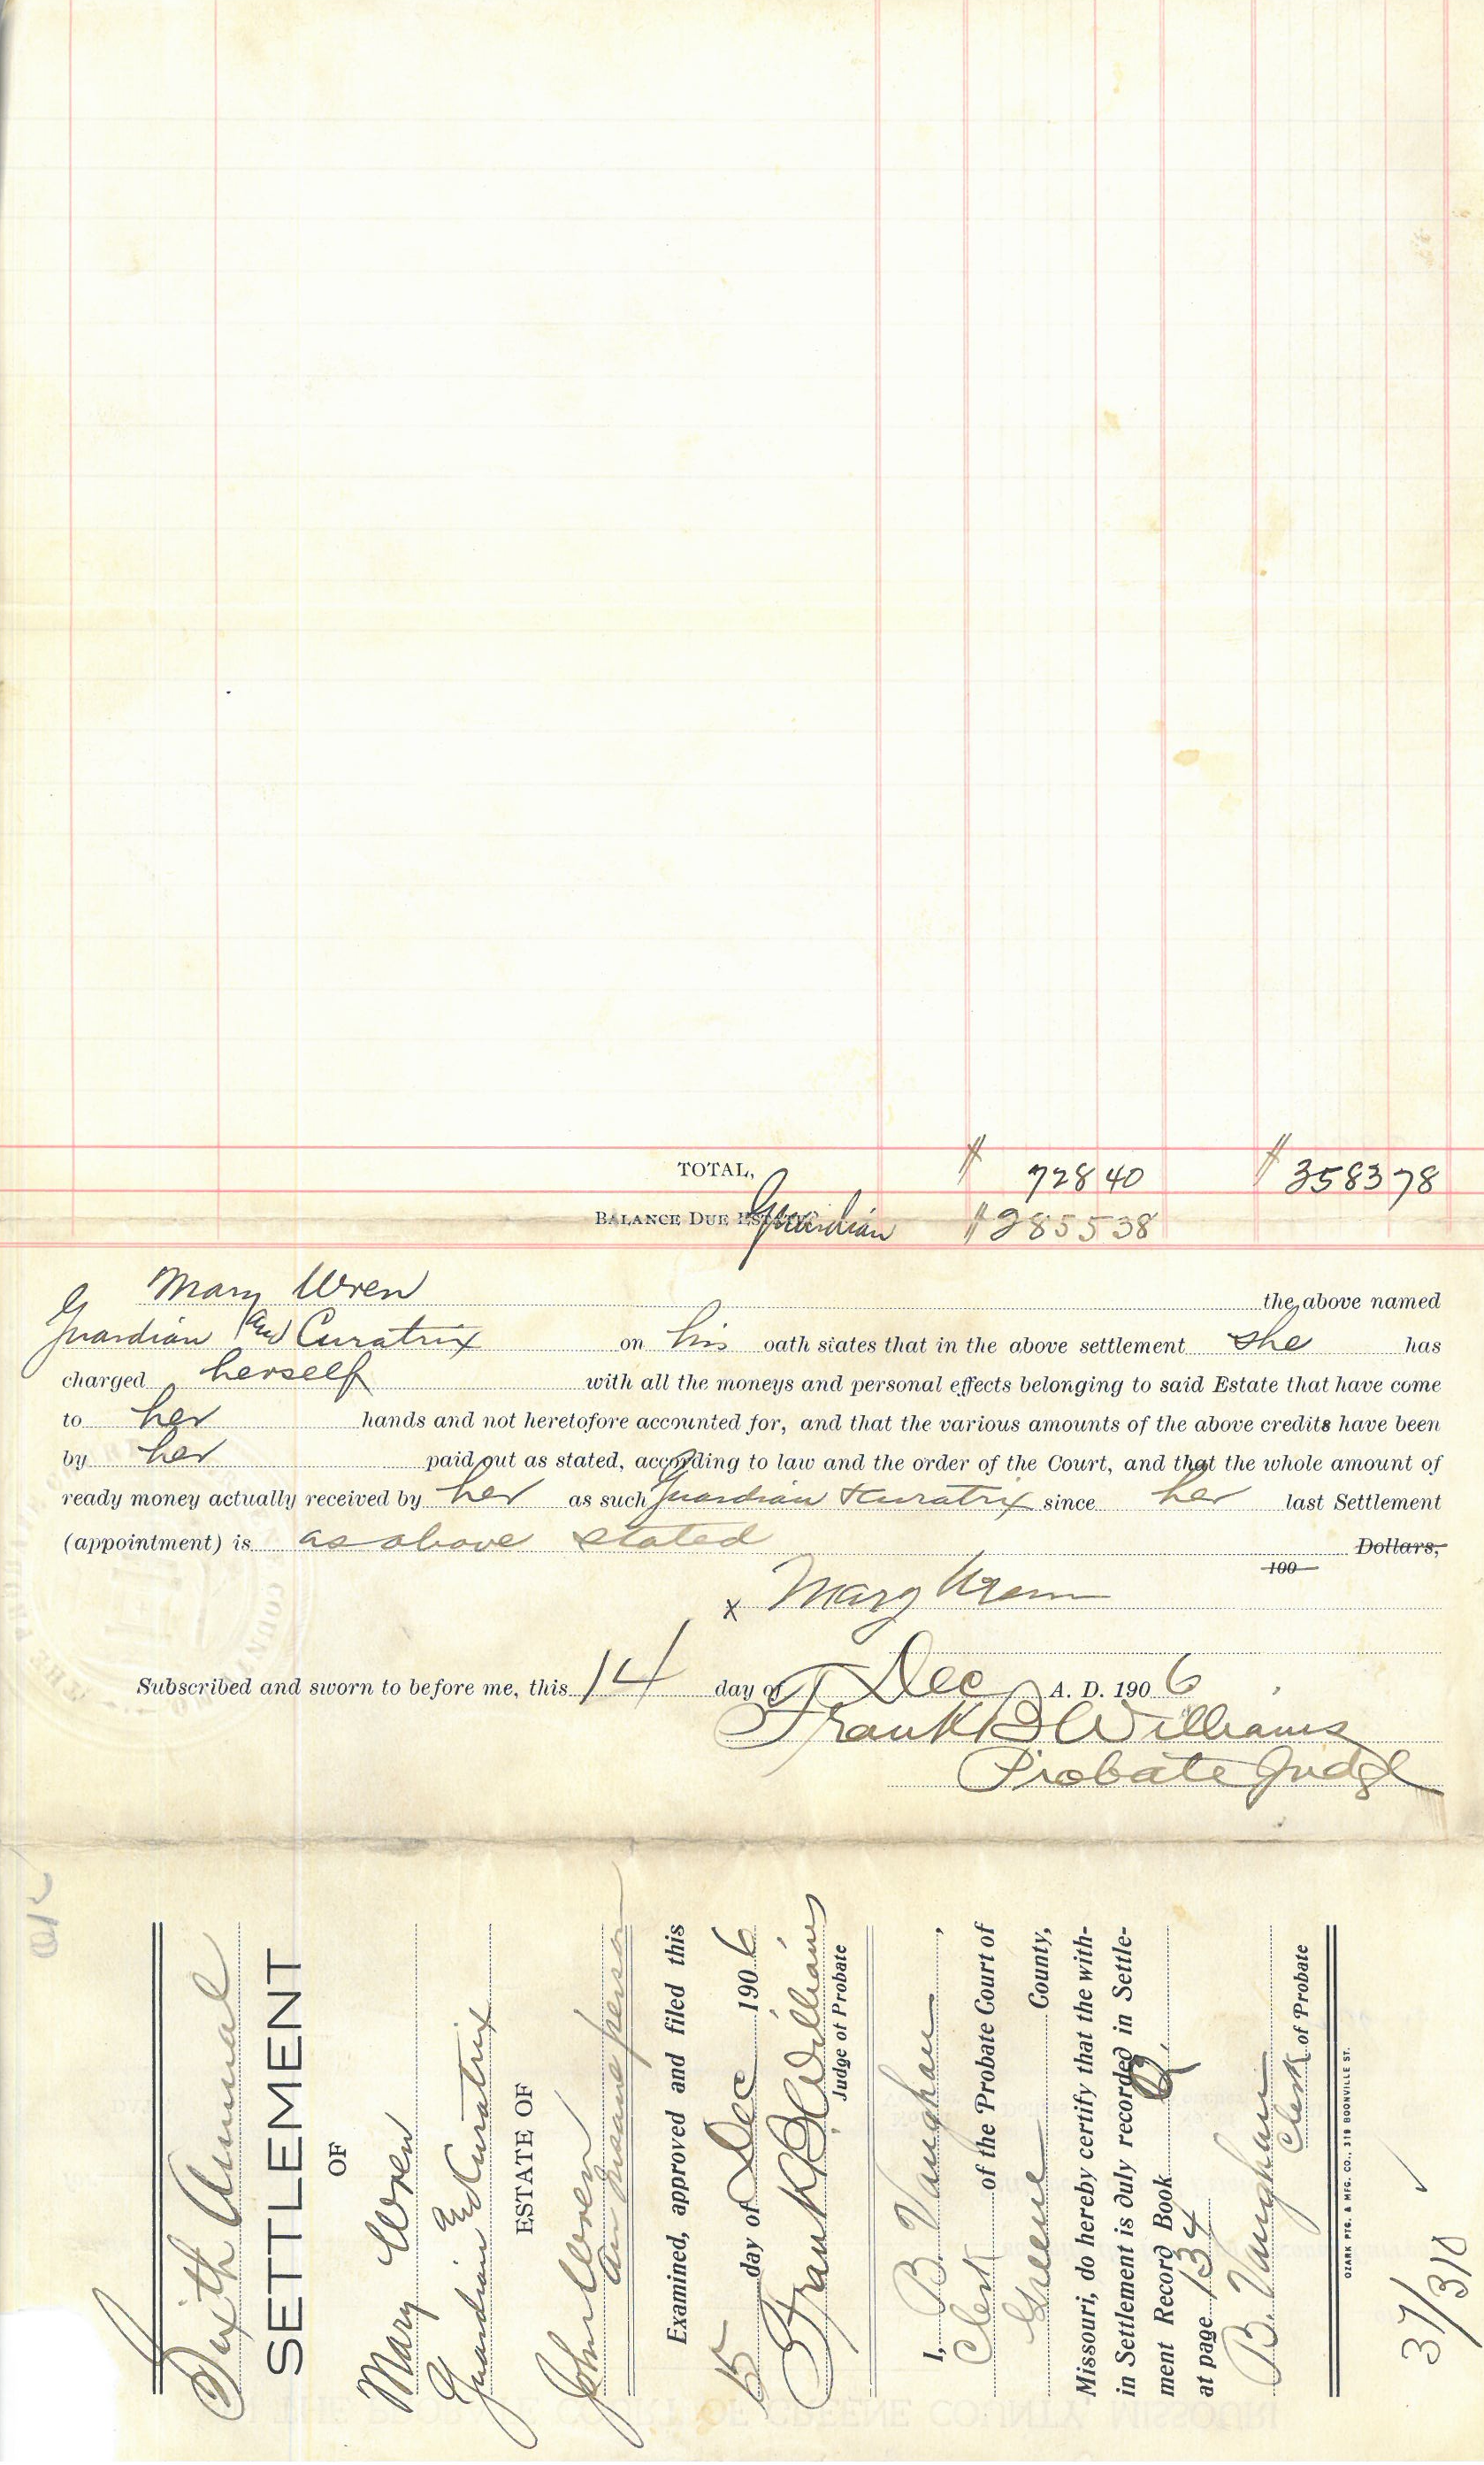 TOTAL, $ 728 40 $ 3583 78
BALANCE DUE ESTATE Guardian $ 2855 38
Mary Wren the above named
Guardian and Curatrix on his oath states that in the above settlement she has
charged herself with all the moneys and personal effects belonging to said Estate that have come
to her hands and not heretofore accounted for, and that the various amounts of the above credits have been
by her paid out as stated, according to law and the order of the Court, and that the whole amount of
ready money actually received by her as such Guardian & Curatrix since her last Settlement
(appointment) is as above stated Dollars,
100
x Mary Wrenn
Subscribed and sworn to before me, this 14 day of Dec A. D. 1906
Frank B Williams
Probate Judge
OK
Sixth Annual
SETTLEMENT
OF
Mary Wren
Guardian and Curatrix
ESTATE OF
John Wren
an insane person
Examined, approved and filed this
15 day of Dec 1906
Frank B Williams
Judge of Probate
I, B. Vaughan,
Clerk of the Probate Court of
Greene County,
Missouri, do hereby certify that the with-
in Settlement is duly recorded in Settle-
ment Record Book Q.
at page 134
B. Vaughan
Clerk of Probate
OZARK PTG. & MFG. CO., 319 BOONVILLE ST.
37/310
IN THE PROBATE COURT OF GREENE COUNTY MISSOURI